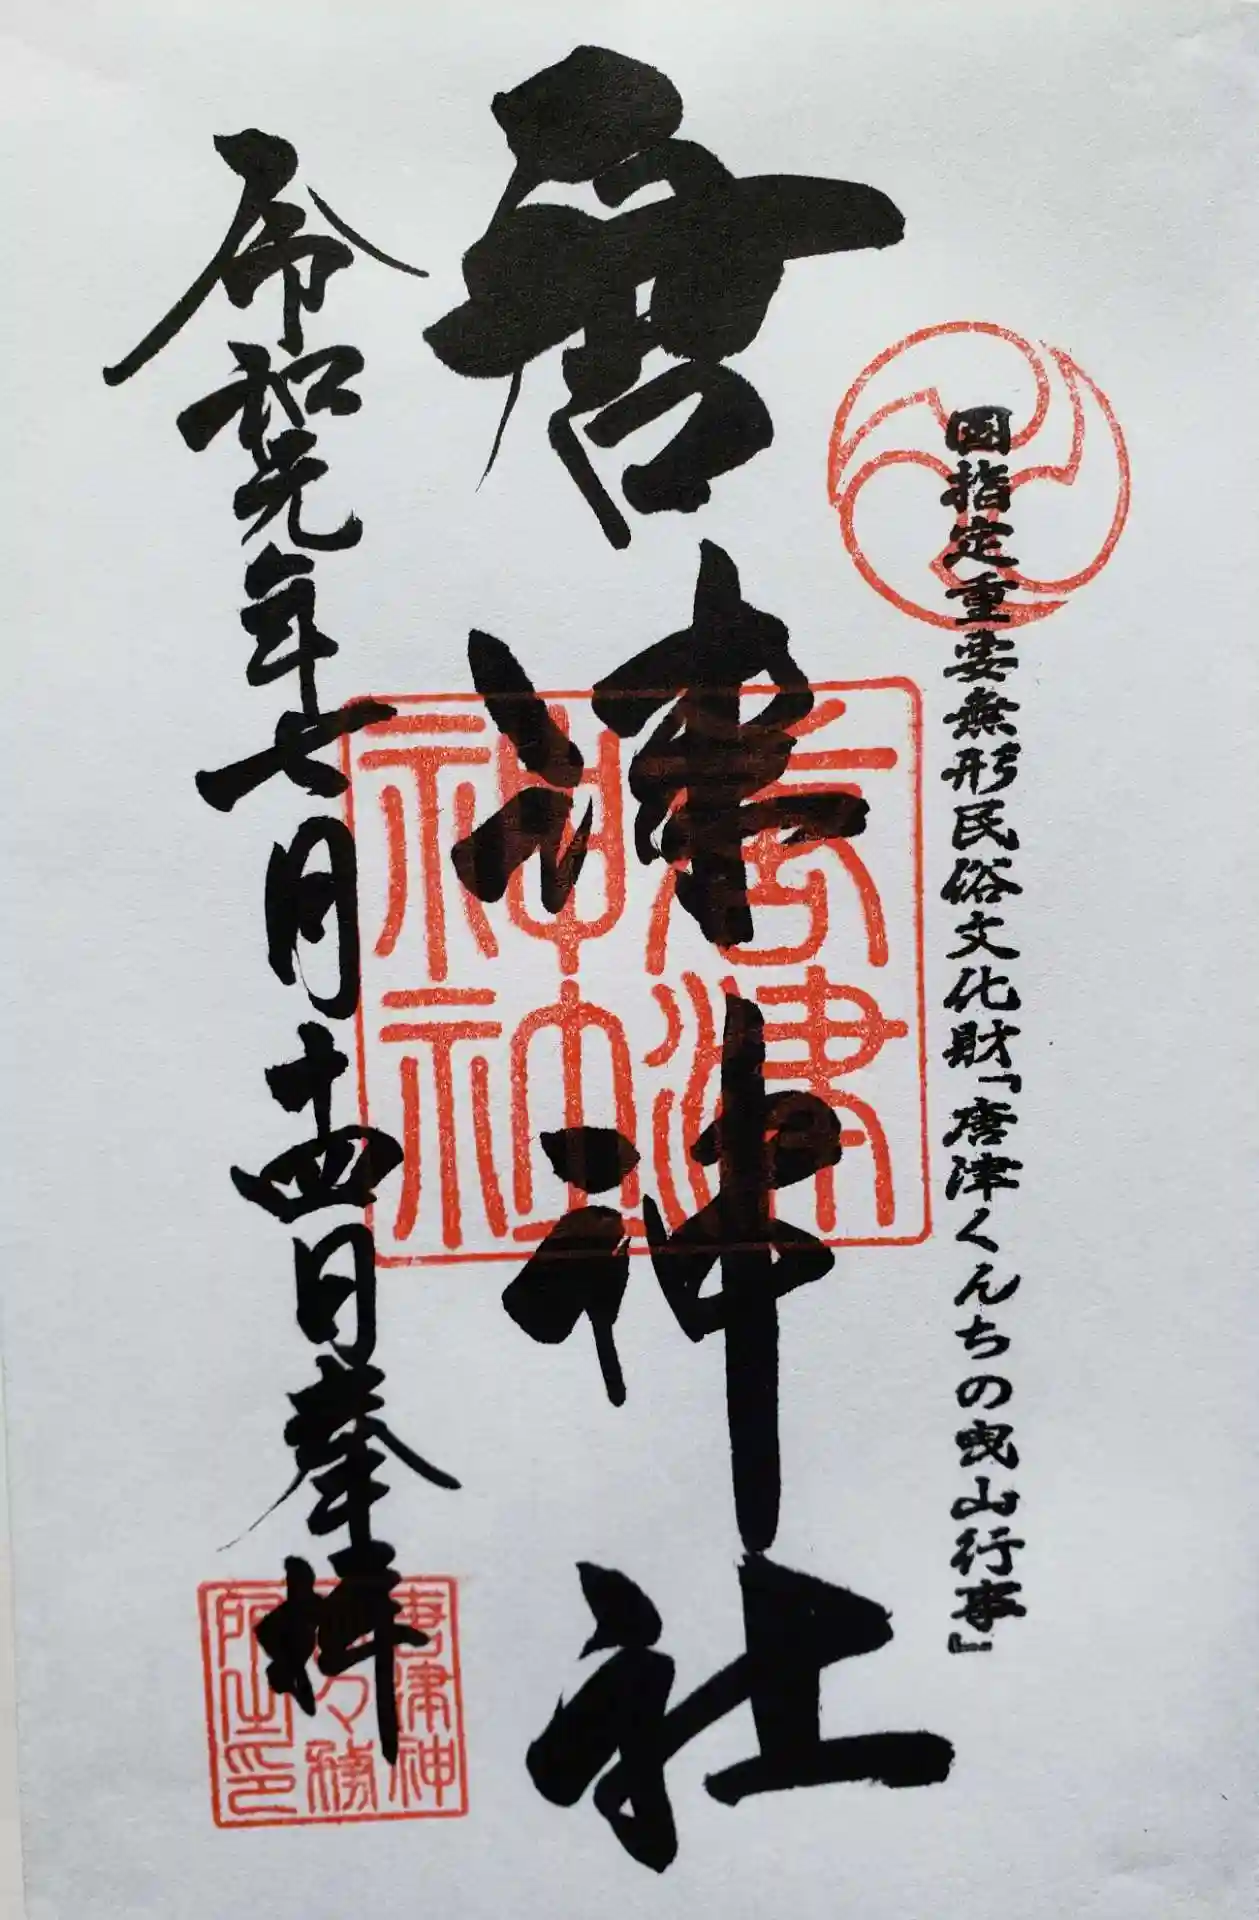 國指定重要無形民俗文化財「唐津くんちの曳山行事」
唐津神社
唐津
神社
令和元年七月十四日奉拝
唐津神
所之印